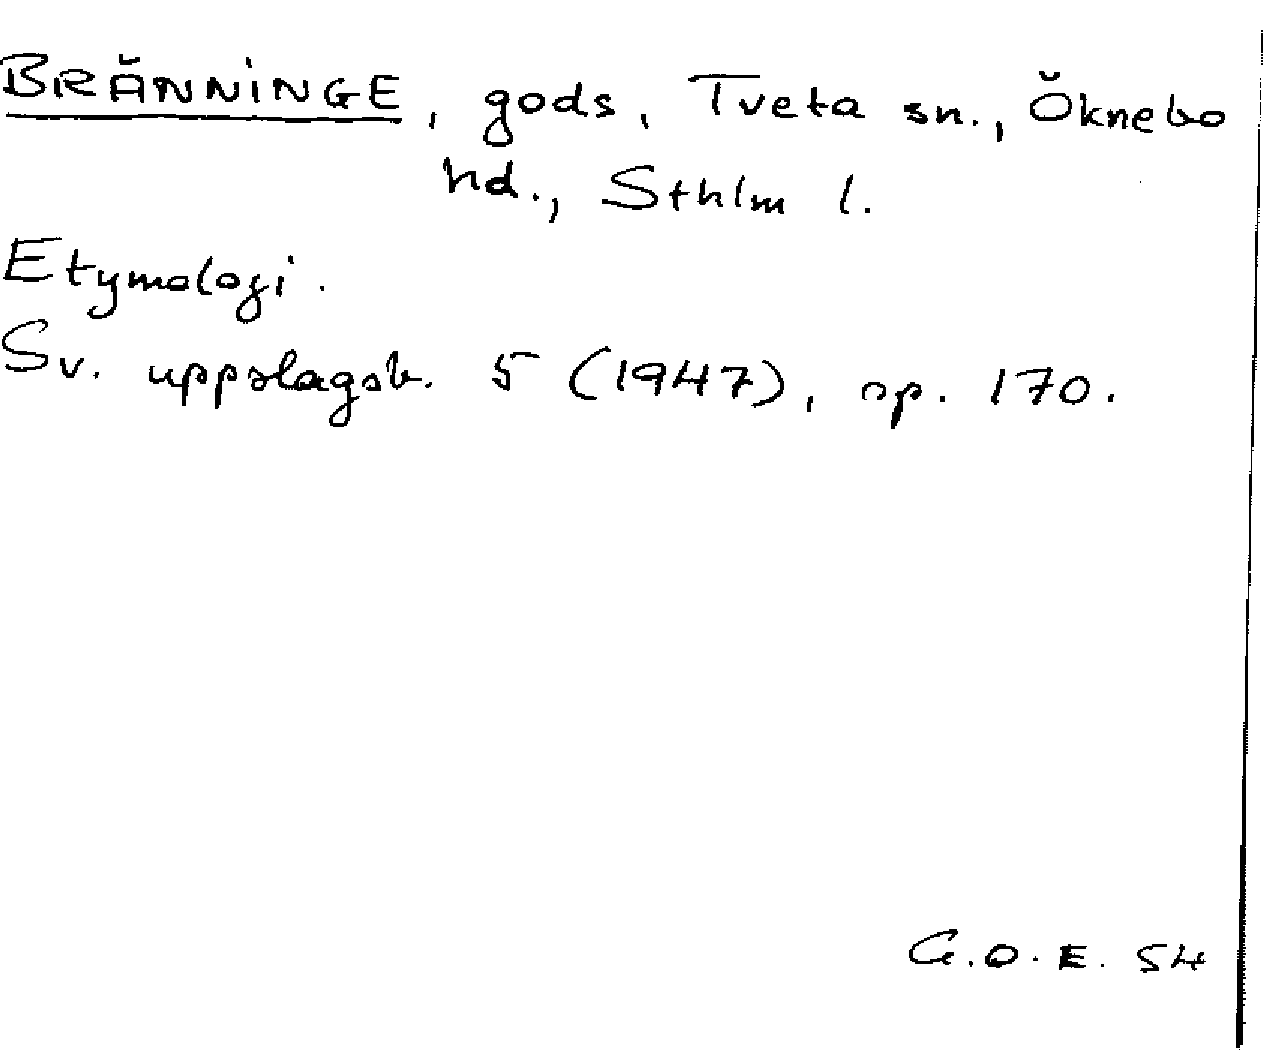 BRÄNNINGE, gods, Tveta sn., Öknebo
hd., Sthlm l.
Etymologi.
Sv. uppslagsb. 5 (1947), sp. 170.
G.O.E. 54